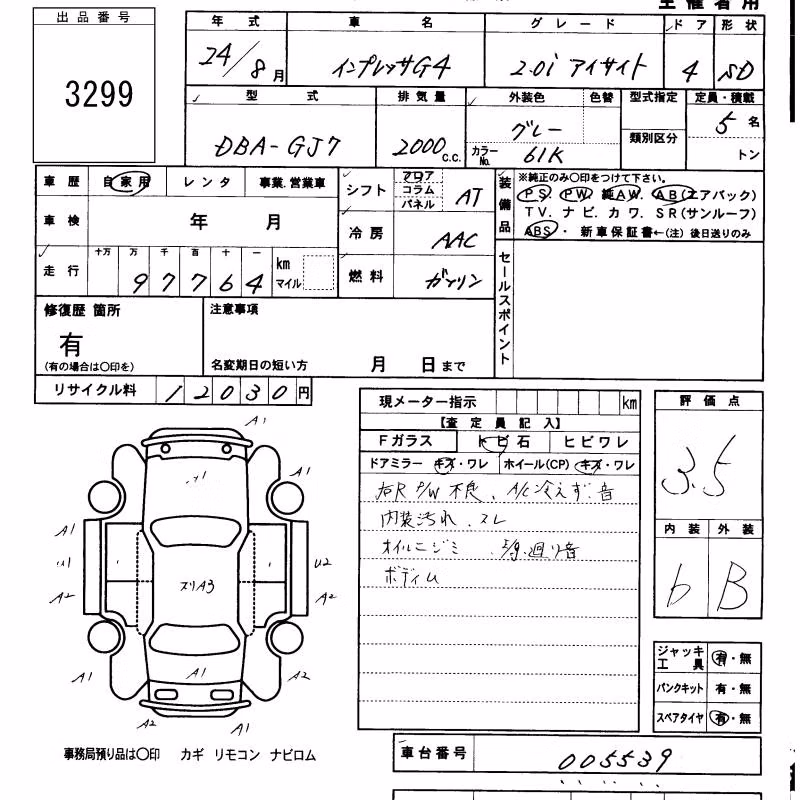 出品番号
3299
年式 車名 グレード ドア 形状
24/8月 インプレッサG4 2.0i アイサイト 4 SD
型式 排気量 外装色 色替 型式指定 定員・積載
DBA-GJ7 2000 c.c. グレー 5名
カラーNo. 61K 類別区分 トン
車歴 自家用 レンタ 事業.営業車
車検 年 月
走行 十万 万 千 百 十 一
97764 km マイル
シフト フロア コラム パネル AT
冷房 AAC
燃料 ガソリン
装備品 ※純正のみ〇印をつけて下さい。
PS. PW. 純AW. AB(エアバック)
TV. ナビ. カワ. SR(サンルーフ)
ABS・ 新車保証書←(注) 後日送りのみ
セールスポイント
修復歴 箇所
有
(有の場合は〇印を)
注意事項
名変期日の短い方 月 日まで
リサイクル料 12030円
現メーター指示 km
【査定員記入】
Fガラス トビ石 ヒビワレ
ドアミラー キズ・ワレ ホイール(CP) キズ・ワレ
右R P/W 不良、A/C冷えず.音
内装汚れ.スレ
オイルニジミ 廻り音
ボディム
評価点
3.5
内装 外装
b B
ジャッキ工具 有・無
パンクキット 有・無
スペアタイヤ 有・無
A1
A1 A1
A1 A1
U2
A2 A2
スリA3
A1
A1 A1
A2 A1
事務局預り品は〇印 カギ リモコン ナビロム
車台番号 005539